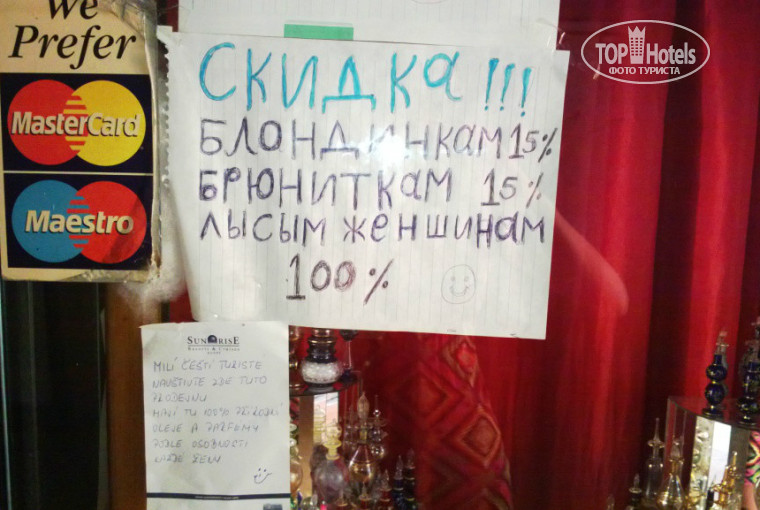 We
Prefer
MasterCard
Maestro
СКИДКА!!!
БЛОНДИНКАМ 15%
БРЮНИТКАМ 15%
ЛЫСЫМ ЖЕНШИНАМ
100%
TOP Hotels
ФОТО ТУРИСТА
SUNRISE
MILÍ ČEŠTÍ TURISTE
NAVŠTIVTE ZDE TUTO
PRODEJNU
MAJÍ TU 100% PŘÍRODNÍ
OLEJE A PARFOMY
PODLE OSOBNOSTI
KAŽDÉ ŽENY